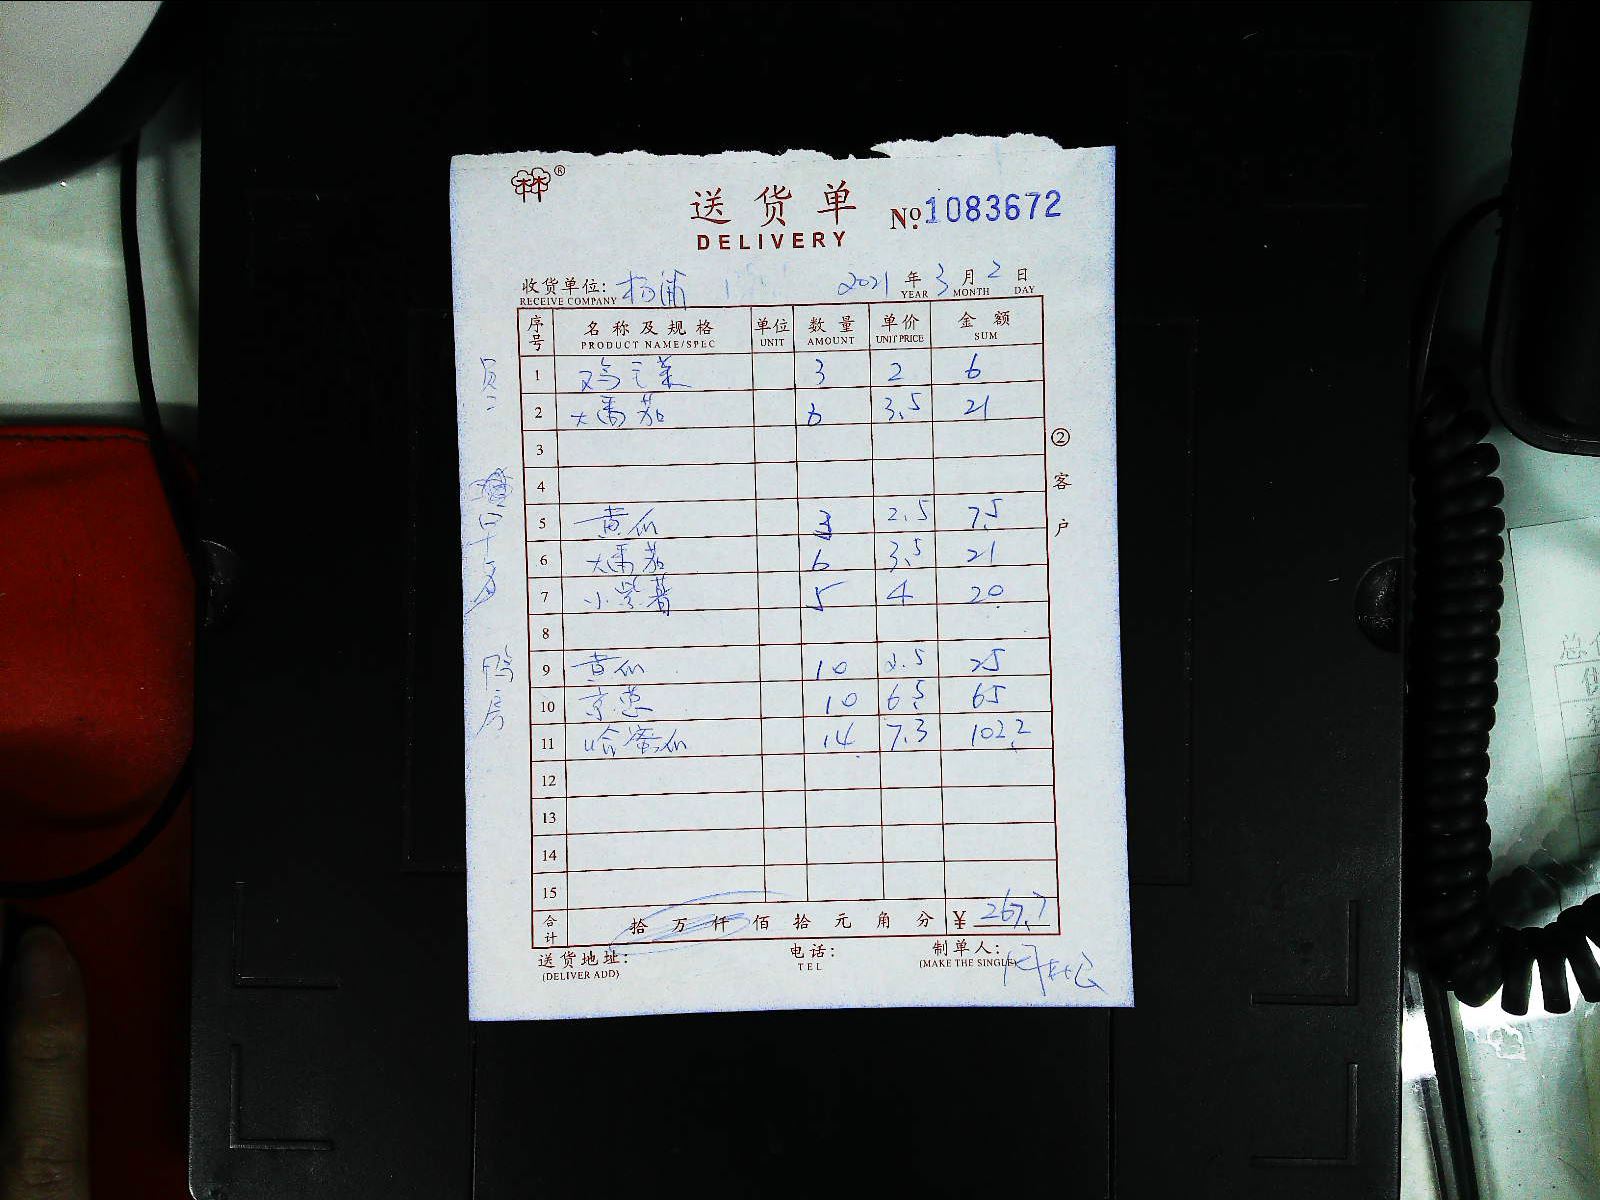 林®
送货单
DELIVERY
No. 1083672
收货单位: 杨浦 2021 年 3 月 2 日
RECEIVE COMPANY YEAR MONTH DAY
序号 名称及规格 单位 数量 单价 金额
PRODUCT NAME/SPEC UNIT AMOUNT UNIT PRICE SUM
1 鸡毛菜 3 2 6
2 大番茄 6 3.5 21
3
4
5 黄瓜 3 2.5 7.5
6 大番茄 6 3.5 21
7 小紫薯 5 4 20
8
9 黄瓜 10 2.5 25
10 京葱 10 6.5 65
11 哈蜜瓜 14 7.3 102.2
12
13
14
15
合计 拾 万 仟 佰 拾 元 角 分 ¥ 267.7
送货地址: 电话: 制单人:
(DELIVER ADD) TEL (MAKE THE SINGLE)
② 客户